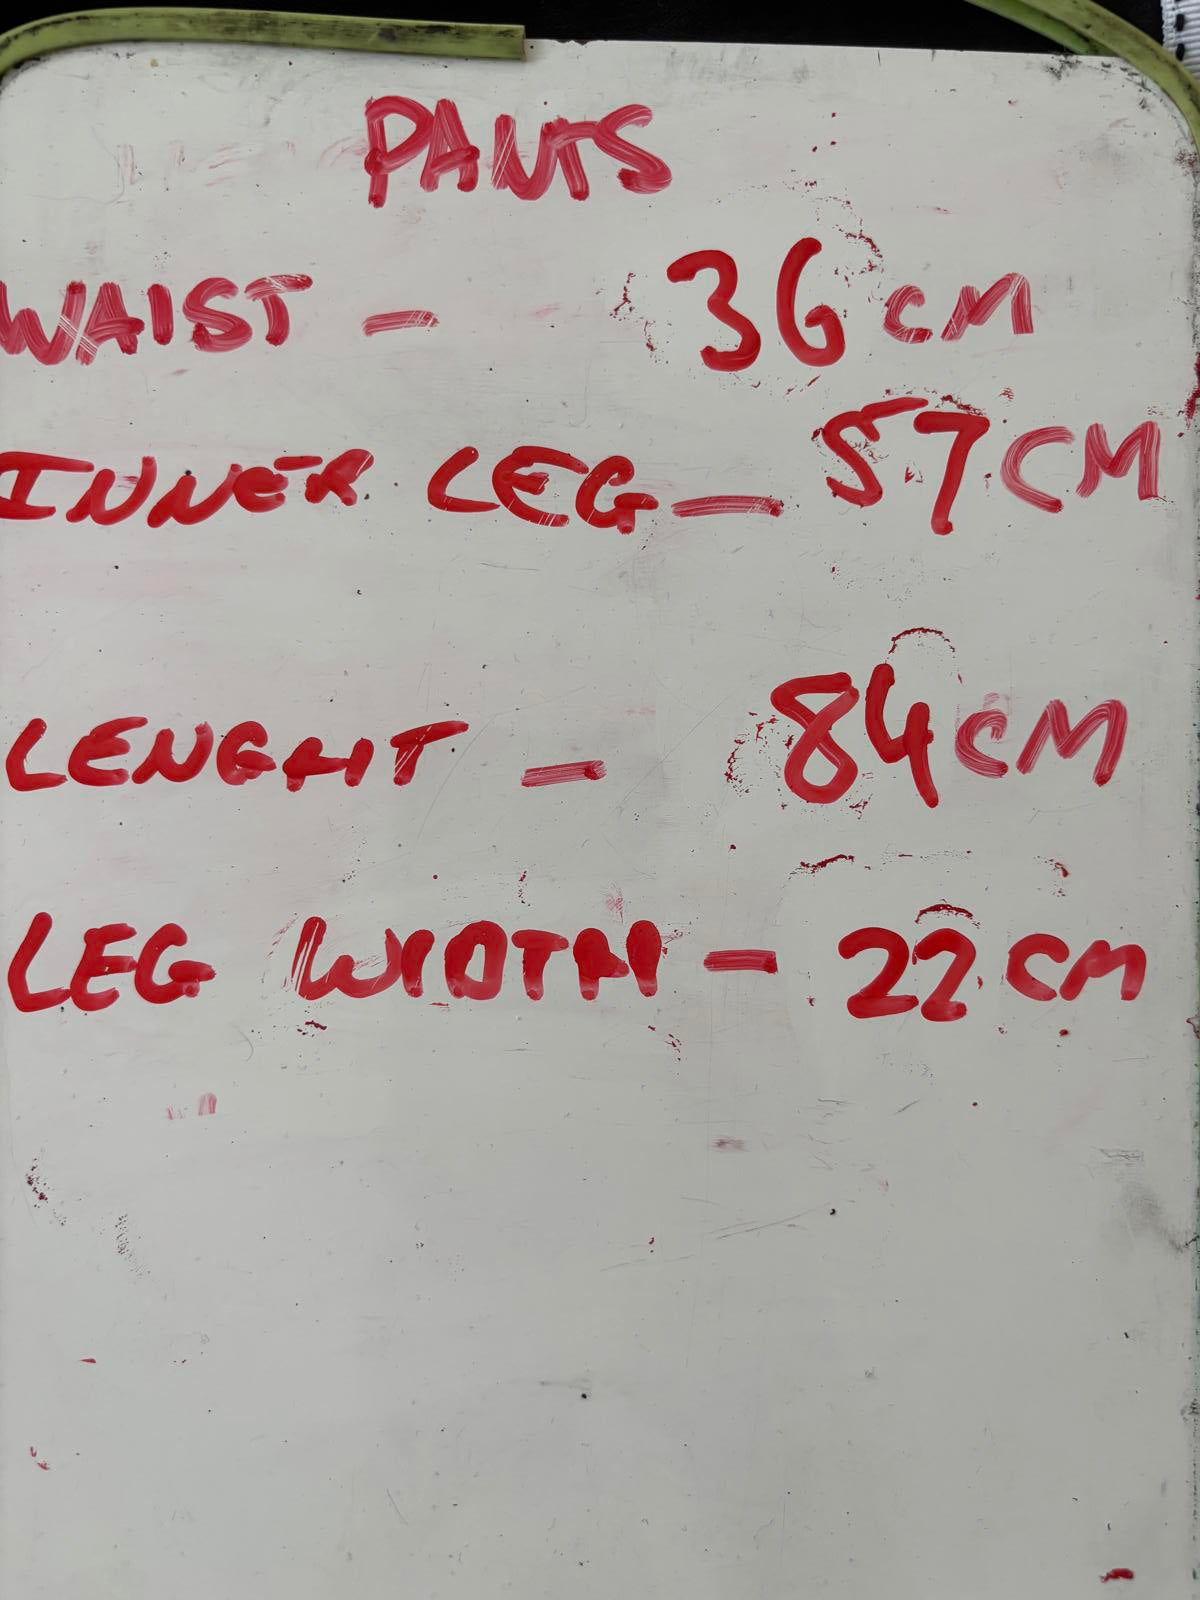 PANTS
WAIST - 36 CM
INNER LEG - 57 CM
LENGHT - 84 CM
LEG WIDTH - 22 CM